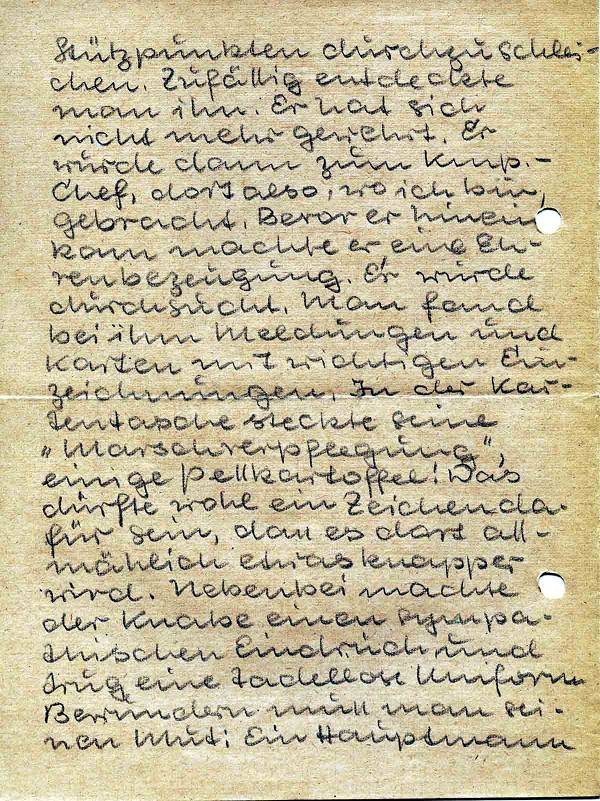 Stützpunkten durchzuschlei-
chen. Zufällig entdeckte
man ihn. Er hat sich
nicht mehr gewehrt. Er
wurde dann zum Kmp.-
Chef, dort also, wo ich bin,
gebracht. Bevor er hinein
kam machte er eine Eh-
renbezeugung. Er wurde
durchsucht. Man fand
bei ihm Meldungen und
Karten mit wichtigen Ein-
zeichnungen. In der Kar-
tentasche steckte seine
„Marschverpflegung",
einige Pellkartoffel! Das
dürfte wohl ein Zeichen da-
für sein, daß es dort all-
mählich etwas knapper
wird. Nebenbei machte
der Knabe einen sympa-
thischen Eindruck und
trug eine tadellose Uniform
Bewundern muß man sei-
nen Mut: Ein Hauptmann